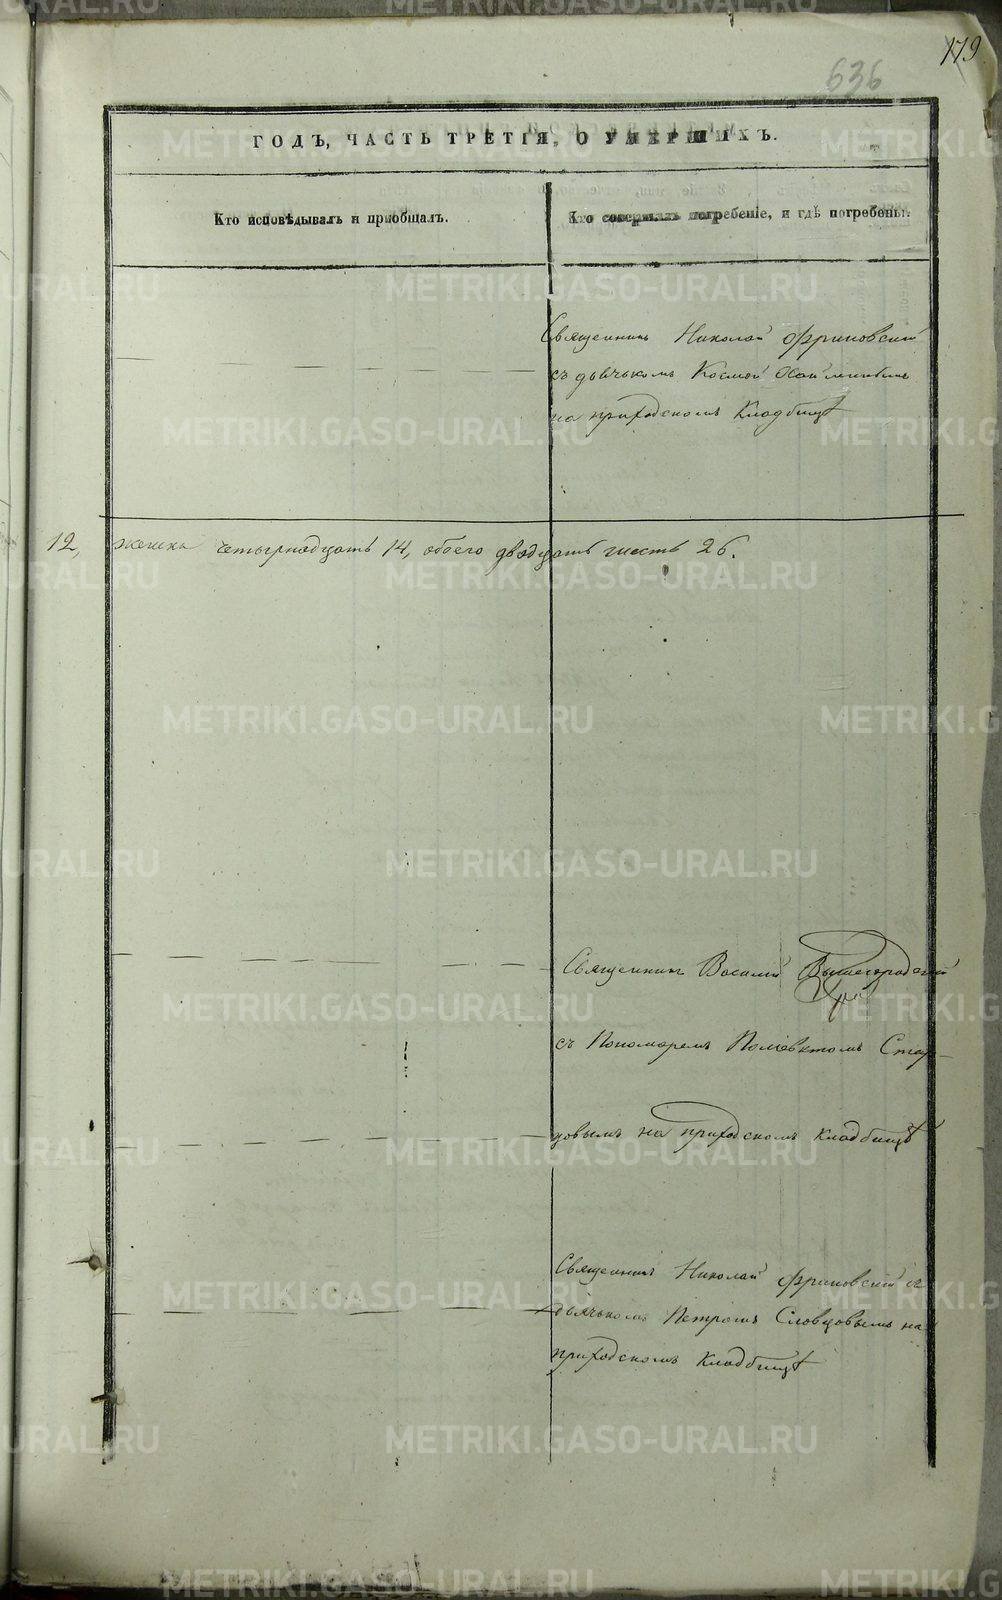 179
636
ГОДЪ, ЧАСТЬ ТРЕТІЯ, О УМЕРШИХЪ.
Кто исповѣдывалъ и пріобщалъ.
Кто совершалъ погребеніе, и гдѣ погребены.
Священникъ Николай Фриновскій
съ дьячькомъ Космой
на приходскомъ Кладбищѣ
12, женска четырнадцать 14, обоего двадцать шесть 26.
Священникъ Василій Вышегородскій
съ Пономаремъ Полієвктомъ Стар-
цовымъ на приходскомъ Кладбищѣ
Священникъ Николай Фриновскій съ
дьячькомъ Петромъ Словцовымъ на
приходскомъ Кладбищѣ
METRIKI.GASO-URAL.RU